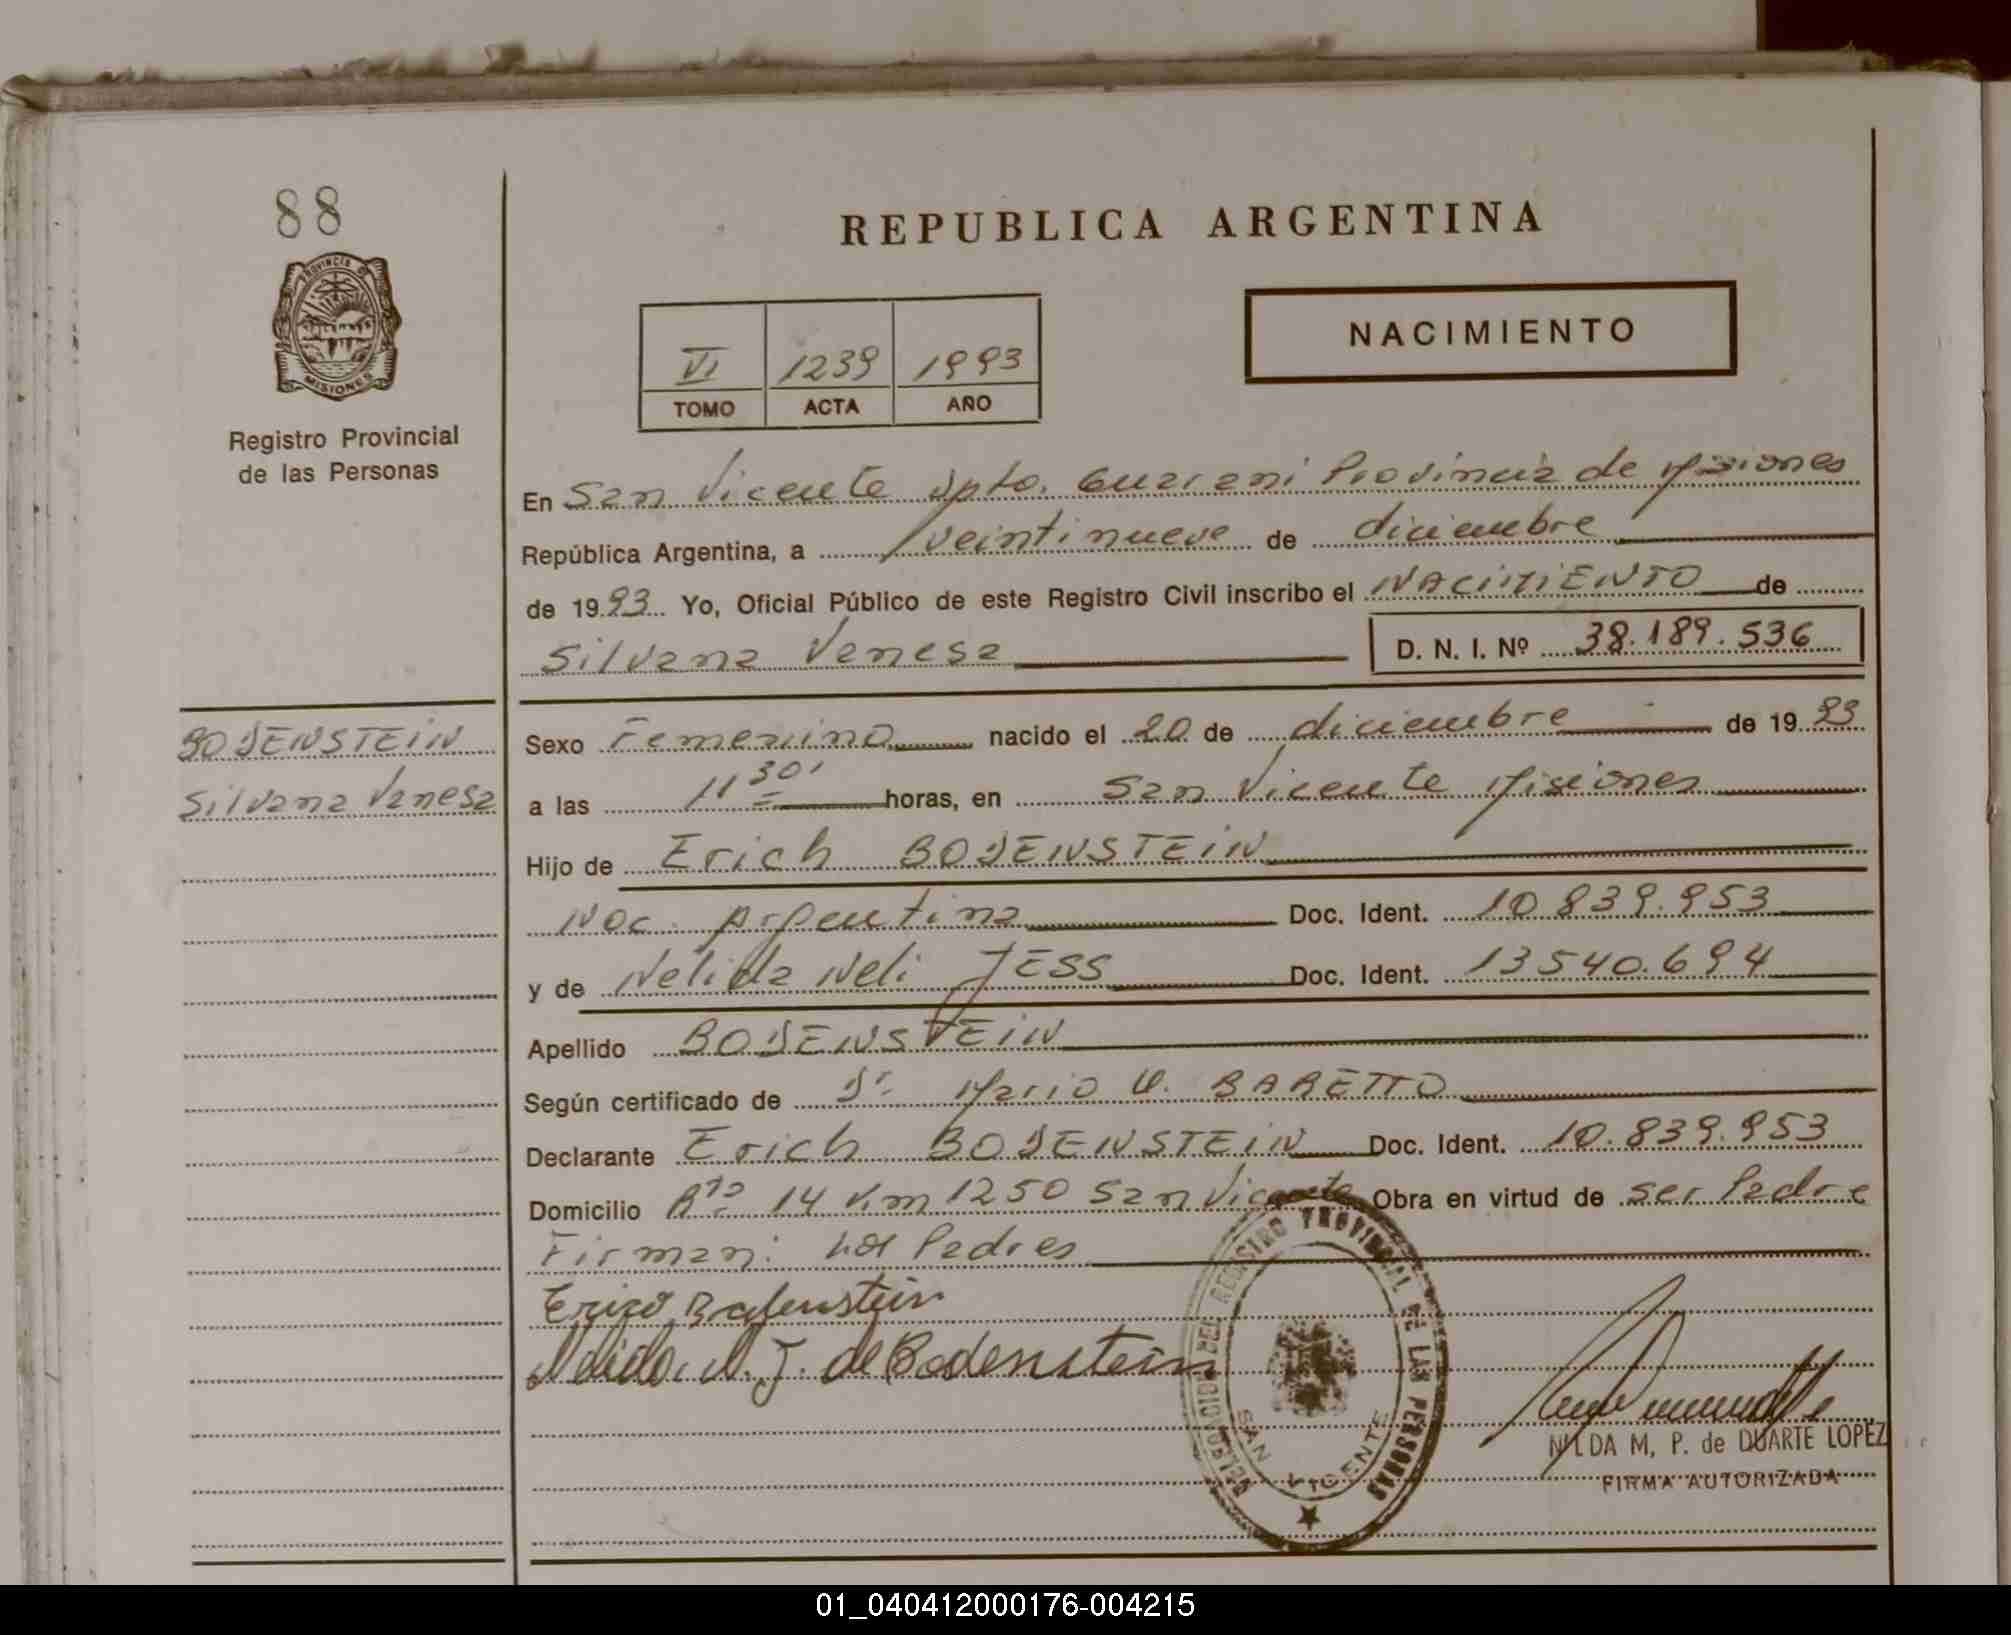 88
PROVINCIA DE
MISIONES
Registro Provincial
de las Personas
REPUBLICA ARGENTINA
VI 1239 1993
TOMO ACTA AÑO
NACIMIENTO
En San Vicente Dpto. Guarani Provincia de Misiones
República Argentina, a veintinueve de diciembre
de 1993 Yo, Oficial Público de este Registro Civil inscribo el NACIMIENTO de
Silvana Vanesa D. N. I. Nº 38.189.536
BODENSTEIN
Silvana Vanesa
Sexo Femenino nacido el 20 de diciembre de 1993
a las 11 30' horas, en San Vicente Misiones
Hijo de Erich BODENSTEIN
Nac. Argentina Doc. Ident. 10.839.953
y de Nelida Neli JESS Doc. Ident. 13540.694
Apellido BODENSTEIN
Según certificado de Dr. Mario BARETTO
Declarante Erich BODENSTEIN Doc. Ident. 10.839.953
Domicilio Rta 14 Km 1250 San Vicente Obra en virtud de ser Padre
Firman: Los Padres
Erico Bodenstein
Nelida. N. J. de Bodenstein
DELEGACION DEL REGISTRO PROVINCIAL DE LAS PERSONAS
SAN VICENTE
NILDA M. P. de DUARTE LOPEZ
FIRMA AUTORIZADA
01_040412000176-004215